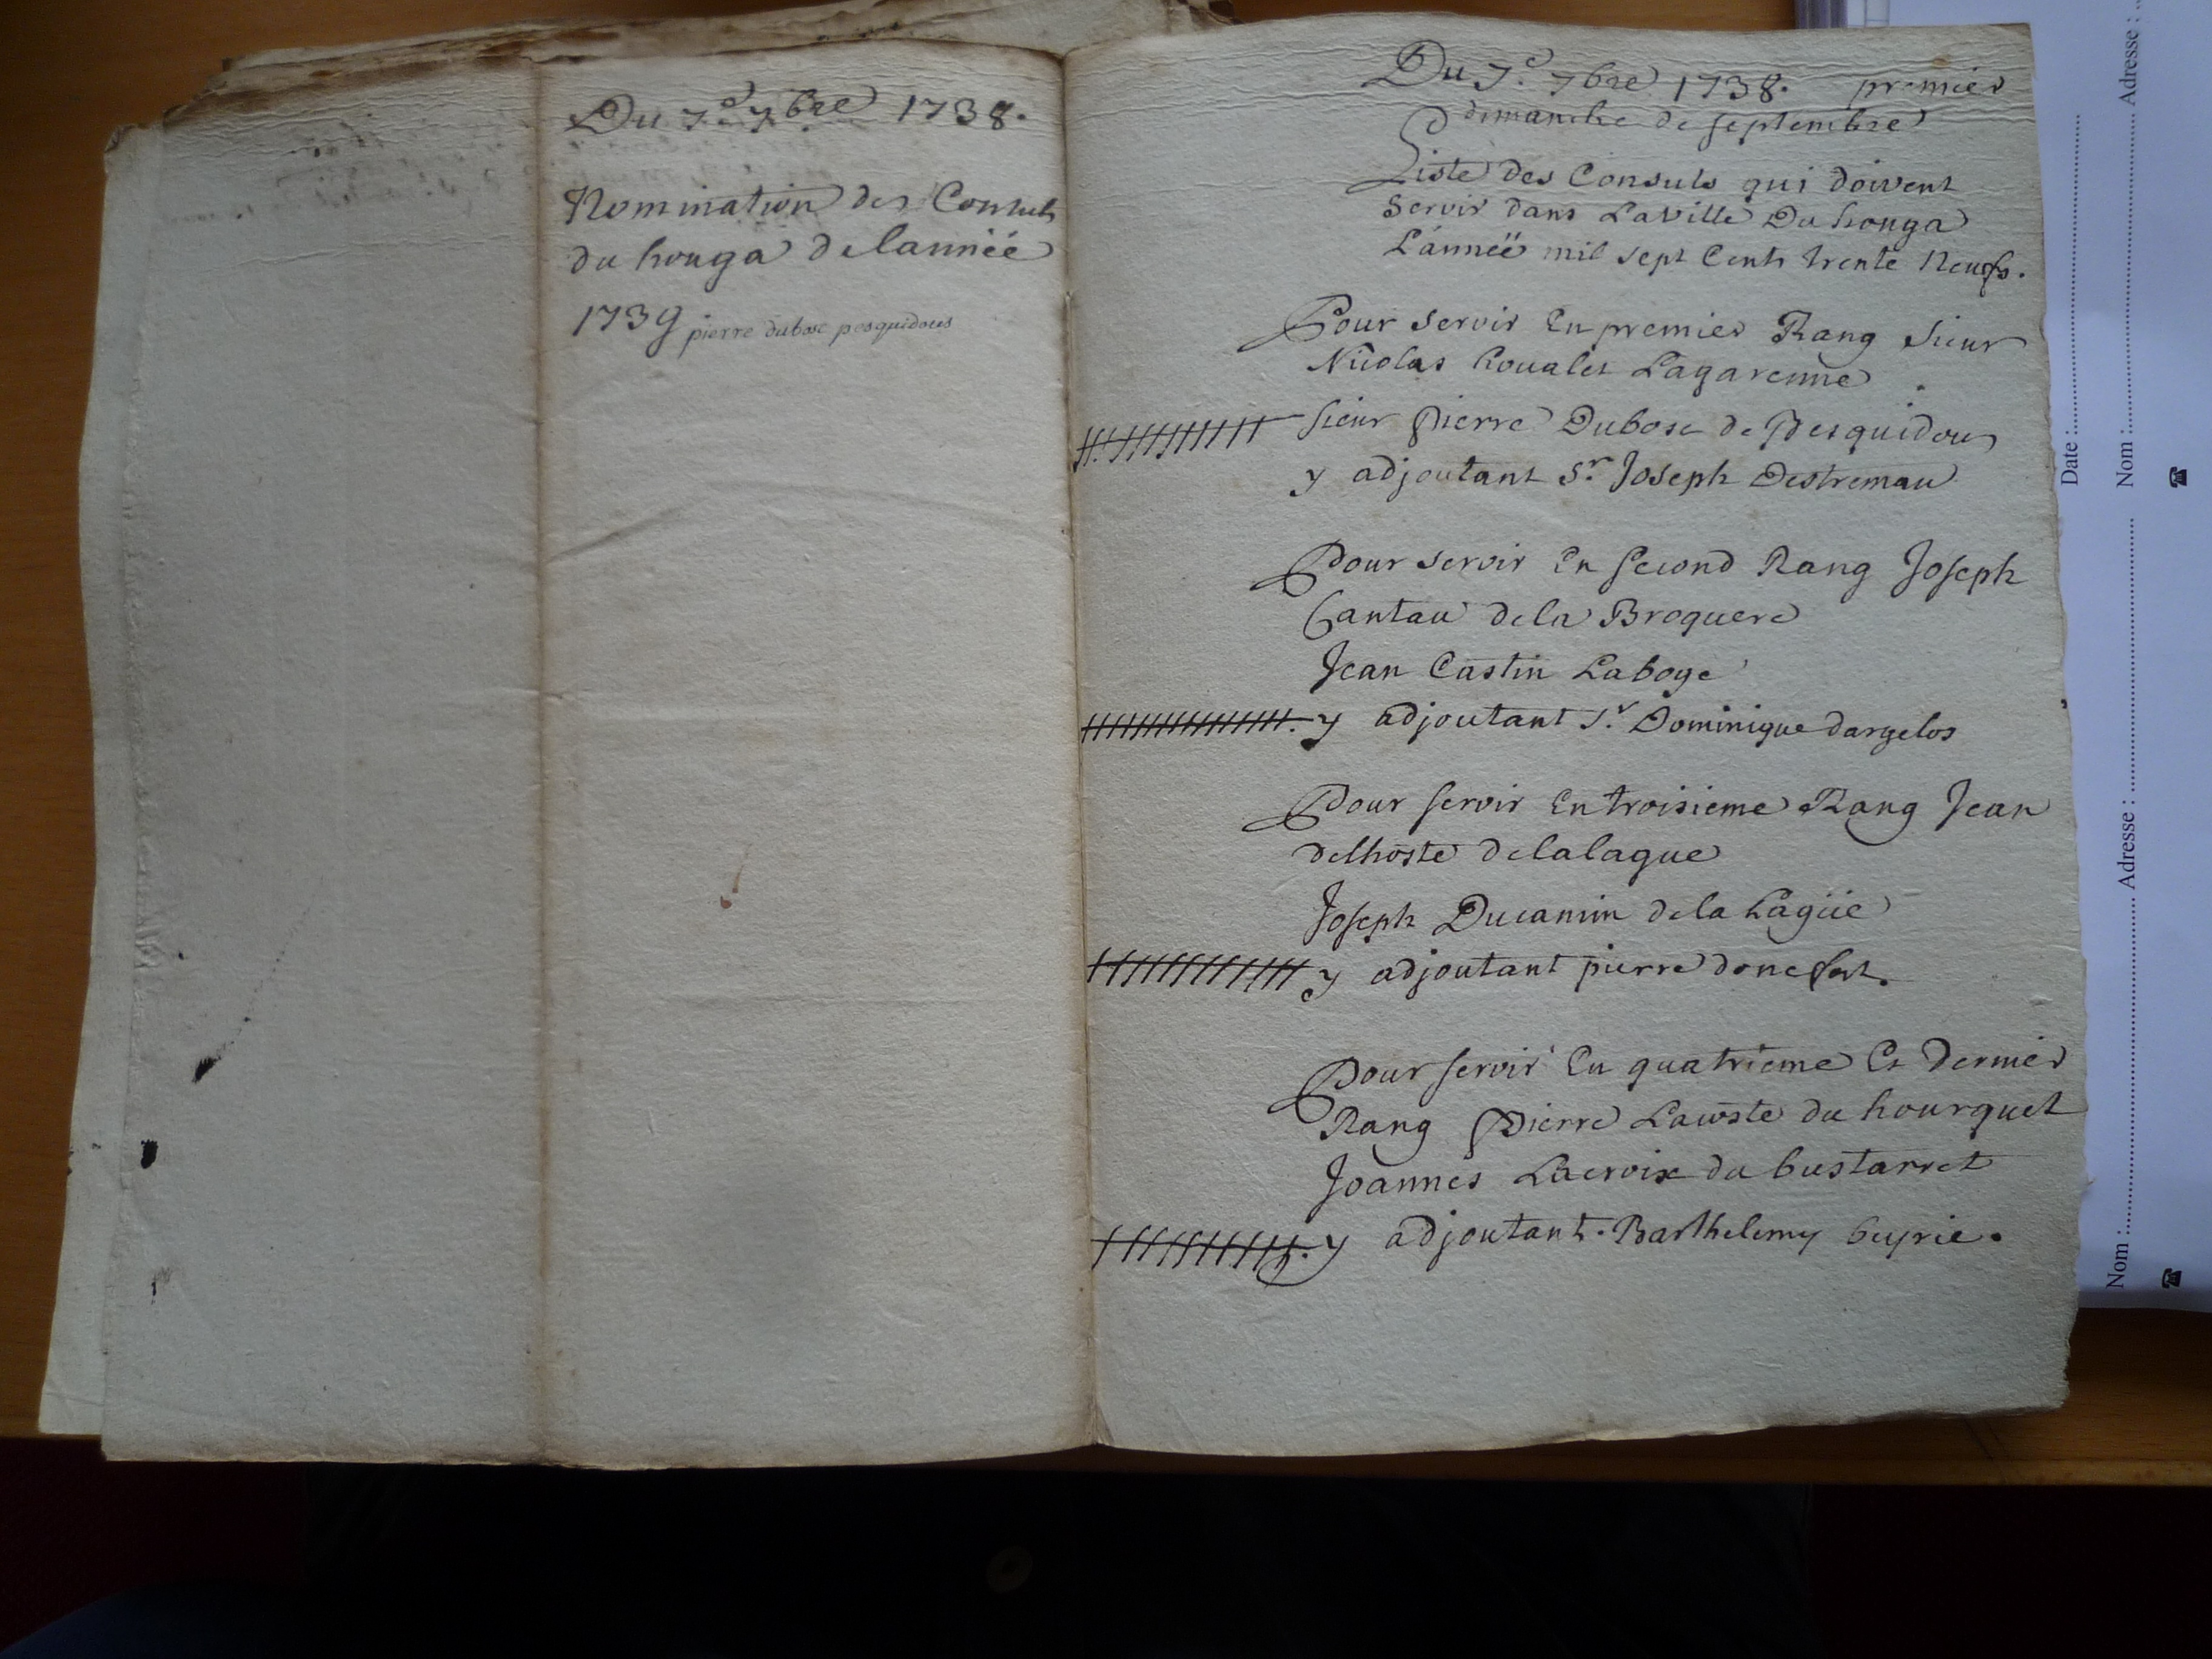 Du 7e 7bre 1738.
Nomination des Consuls
du houga de lannéé
1739 pierre dubosc pesquidous
Du 7e. 7bre 1738. premier
dimanche de septembre
Liste des Consuls qui doivent
servir dans La ville Du houga
L'année mil sept Cents trente Neufs.
Pour servir En premier Rang sieur
Nicolas houalet Lagarenne
sieur pierre Dubosc de Pesquidous
y adjoutant Sr. Joseph Destremau
Pour servir En second Rang Joseph
Cantau de la Broquere
Jean Castin Laboge
y adjoutant Sr. Dominique dargelos
Pour servir En troisieme Rang Jean
delhoste delalague
Joseph Ducamin de la Lagüe
y adjoutant pierre donefort.
Pour servir En quatrieme Et Dernier
Rang Pierre Lacoste du hourquet
Joannes Lacroix du bustarret
y adjoutant. Barthelemy beyrie.
Date :
Nom : Adresse :
Nom : Adresse :